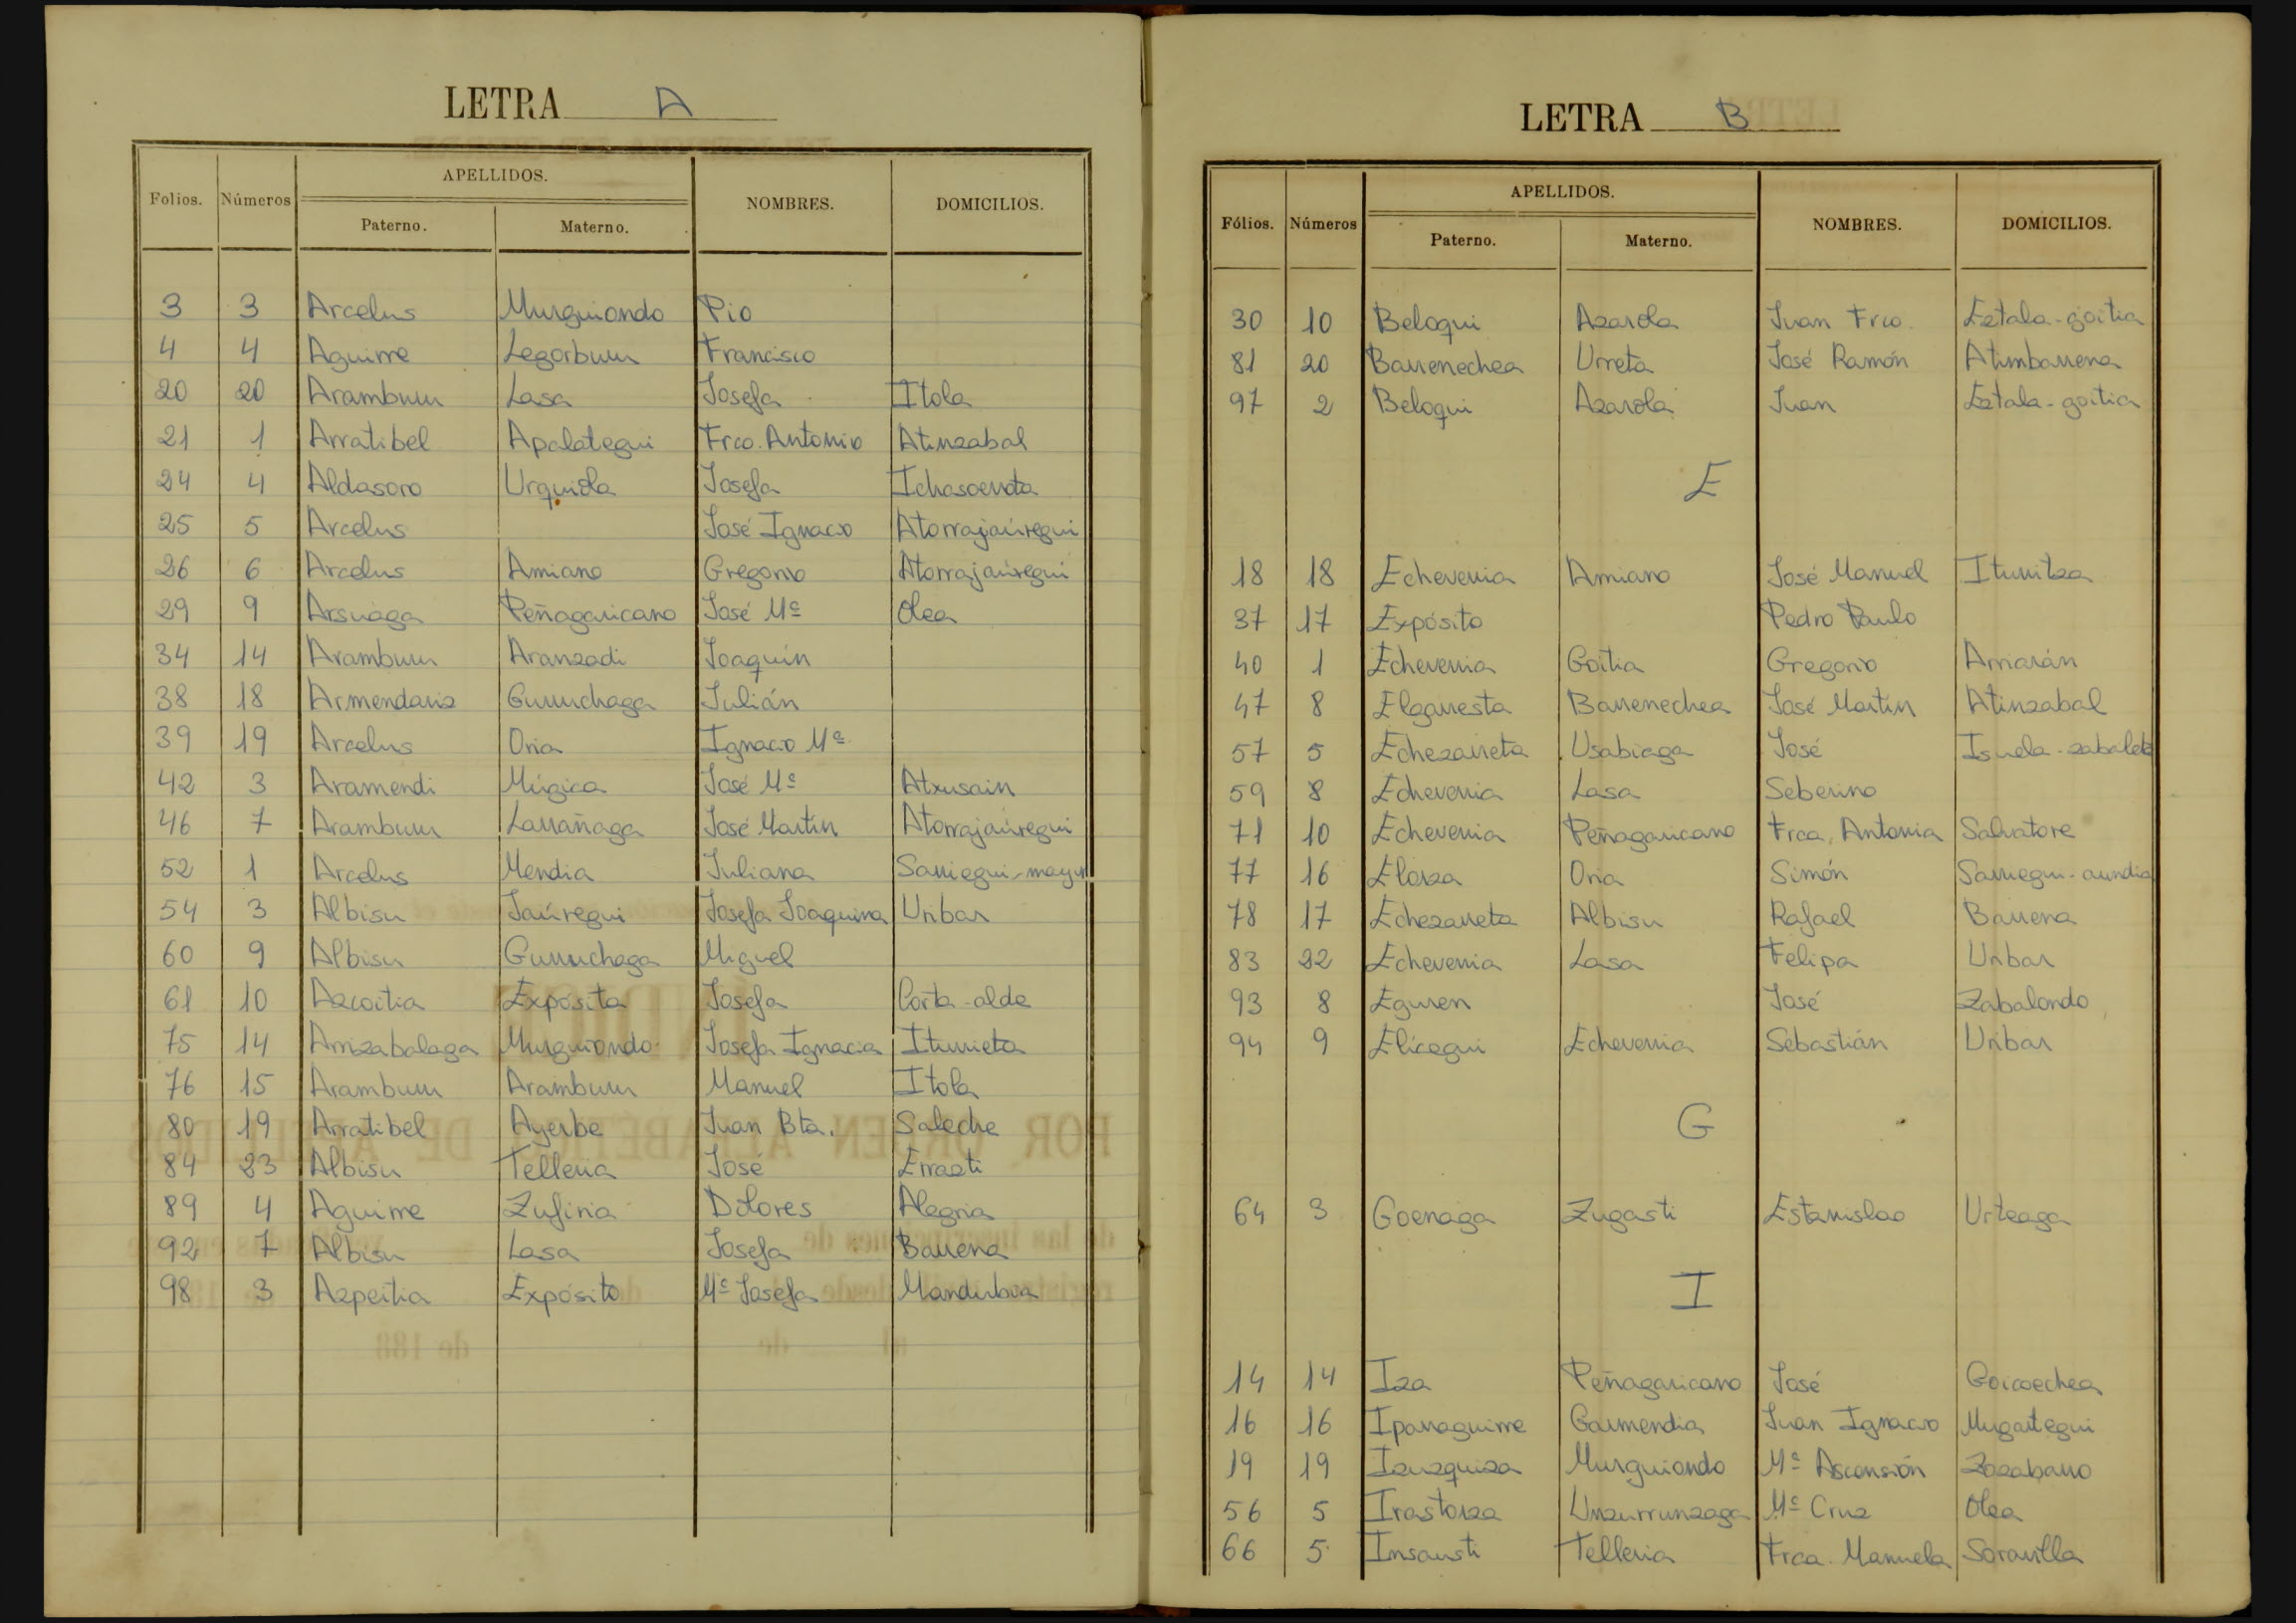 LETRA A
Folios. Números APELLIDOS. NOMBRES. DOMICILIOS.
Paterno. Materno.
3 3 Arcelus Murguiondo Pio
4 4 Aguirre Legorburu Francisco
20 20 Aramburu Lasa Josefa Itola
21 1 Arratibel Apalategui Frco. Antonio Atinzabal
24 4 Aldasoro Urquiola Josefa Ichasoerrota
25 5 Arcelus José Ignacio Atorrajaúregui
26 6 Arcelus Amiano Gregorio Atorrajaúregui
29 9 Arsuaga Peñagaricano José Mª Olea
34 14 Aramburu Aranzadi Joaquín
38 18 Armendariz Guruchaga Julián
39 19 Arcelus Oria Ignacio Mª
42 3 Aramendi Múgica José Mª Atxusain
46 7 Aramburu Larrañaga José Martín Atorrajaúregui
52 1 Arcelus Mendia Juliana Sarriegui-mayor
54 3 Albisu Jaúregui Josefa Joaquina Uribar
60 9 Albisu Guruchaga Miguel
61 10 Azcoitia Expósita Josefa Corta-alde
75 14 Arrizabalaga Murguiondo Josefa Ignacia Iturrieta
76 15 Aramburu Aramburu Manuel Itola
80 19 Arratibel Ayerbe Juan Bta. Saleche
84 23 Albisu Telleria José Errazti
89 4 Aguirre Zufiria Dolores Alegria
92 7 Albisu Lasa Josefa Barrena
98 3 Azpeitia Expósito Mª Josefa Mandubia
LETRA B
Fólios. Números APELLIDOS. NOMBRES. DOMICILIOS.
Paterno. Materno.
30 10 Beloqui Azarola Juan Frco. Eztala-goitia
81 20 Barrenechea Urreta José Ramón Atumbarrena
97 2 Beloqui Azarola Juan Eztala-goitia
E
18 18 Echeverria Amiano José Manuel Iturritza
37 17 Expósito Pedro Paulo
40 1 Echeverria Goitia Gregorio Arrarán
47 8 Elgarresta Barrenechea José Martín Atinzabal
57 5 Echezarreta Usabiaga José Isuela-zabaleta
59 8 Echeverria Lasa Seberino
71 10 Echeverria Peñagaricano Frca. Antonia Salvatore
77 16 Elorza Oria Simón Sarriegui-aundia
78 17 Echezarreta Albisu Rafael Barrena
83 22 Echeverria Lasa Felipa Uribar
93 8 Eguren José Zabalondo
94 9 Elicegui Echeverria Sebastián Uribar
G
64 3 Goenaga Zugasti Estanislao Urteaga
I
14 14 Iza Peñagaricano José Goicoechea
16 16 Iparraguirre Garmendia Juan Ignacio Mugartegui
19 19 Izuzquiza Murguiondo Mª Ascensión Zozabarro
56 5 Irastorza Unzurrunzaga Mª Cruz Olea
66 5 Insausti Telleria Frca. Manuela Soravilla